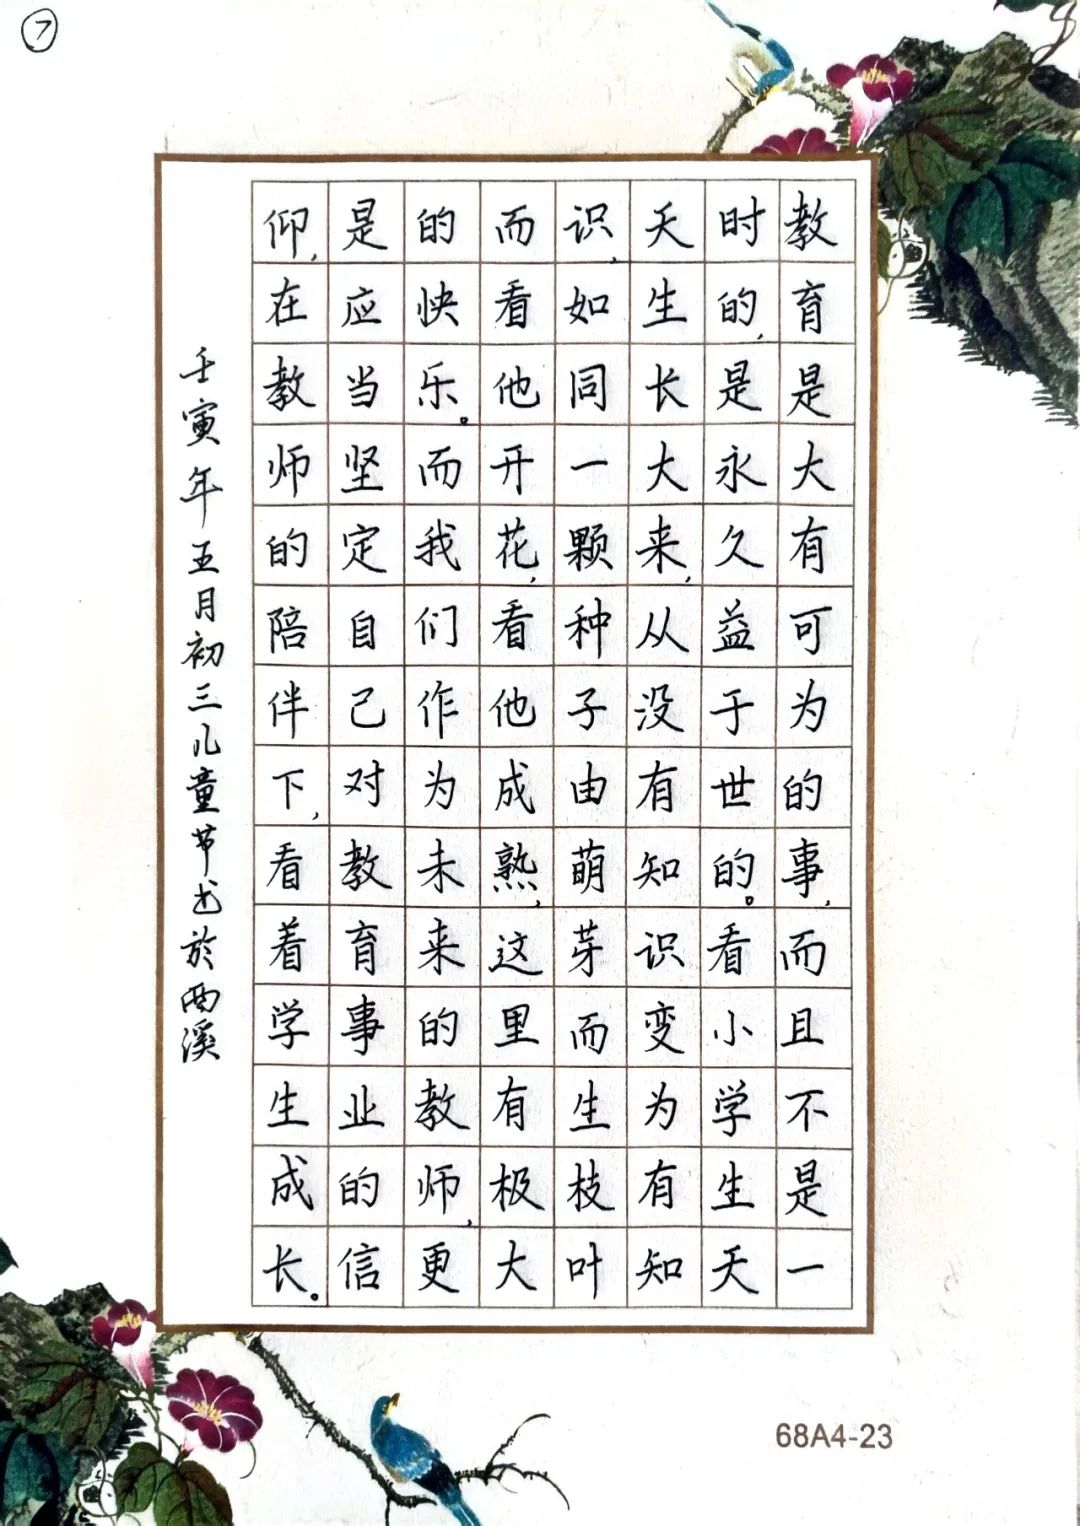 ⑦
教育是大有可为的事,而且不是一
时的,是永久益于世的。看小学生天
天生长大来,从没有知识变为有知
识,如同一颗种子由萌芽而生枝叶
而看他开花,看他成熟,这里有极大
的快乐。而我们作为未来的教师,更
是应当坚定自己对教育事业的信
仰,在教师的陪伴下,看着学生成长。
壬寅年五月初三儿童节书於西溪
68A4-23